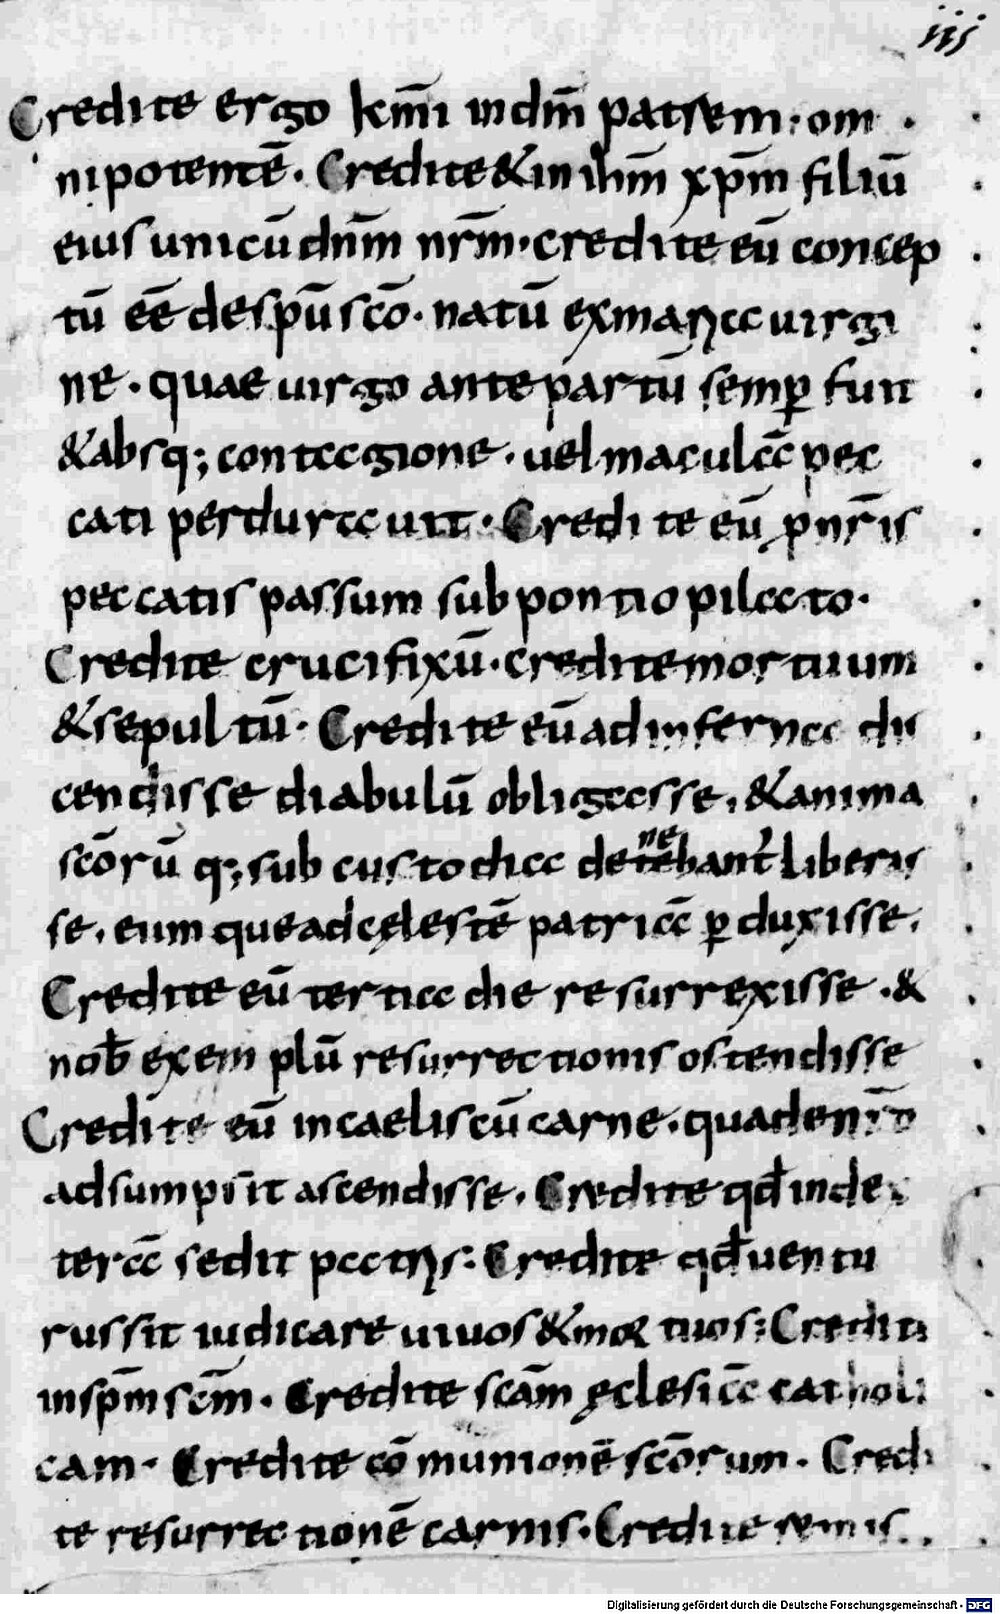 iij
Credite ergo km̄i in dm̄ patrem · om
nipotentē · Credite & in ihm̄ xpm̄ filiū
eius unicū dnm̄ nrm̄ · credite eū concep
tū eē de spū sc̄o · natū ex maria uirgi
ne · quae uirgo ante partū semꝑ fuit
& absq; contagione · uel maculā pec
cati perdurauit · Credite eū ꝓ nr̄is
peccatis passum sub pontio pilato ·
Credite crucifixū · credite mortuum
& sepultū · Credite eū ad inferna dis
cendisse diabulū obligasse, & anima
sc̄orū q; sub custodia detenebant̄ liberas
se, eumque ad cęlestē patriā ꝑduxisse,
Credite eū tertia die resurrexisse · &
nob̄ exemplū resurrectionis ostendisse
Credite eū in caelis cū carne · qua de nr̄o
adsumpsit ascendisse, Credite qd̄ in dex
terā sedit patris : Credite qd̄ uentu
rus sit iudicare uiuos & mortuos : Credite
in spm̄ scm̄ · Credite scām ęclesiā catholi
cam · Credite cōmunionē sc̄orum · Credi
te resurrectionē carnis · Credite
Digitalisierung gefördert durch die Deutsche Forschungsgemeinschaft - DFG